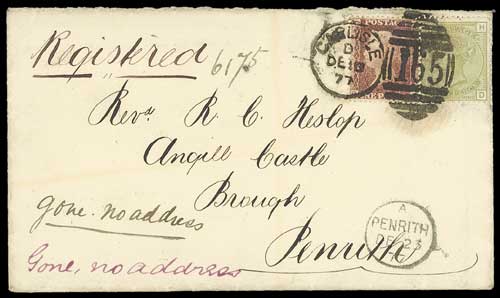 Registered
6175
CARLISLE
D
DE 19
77
165
POSTAG
H
D
Revd R. C. Heslop
Angill Castle
Brough
Penrith
gone. no address
Gone, no address
A
PENRITH
DE 23